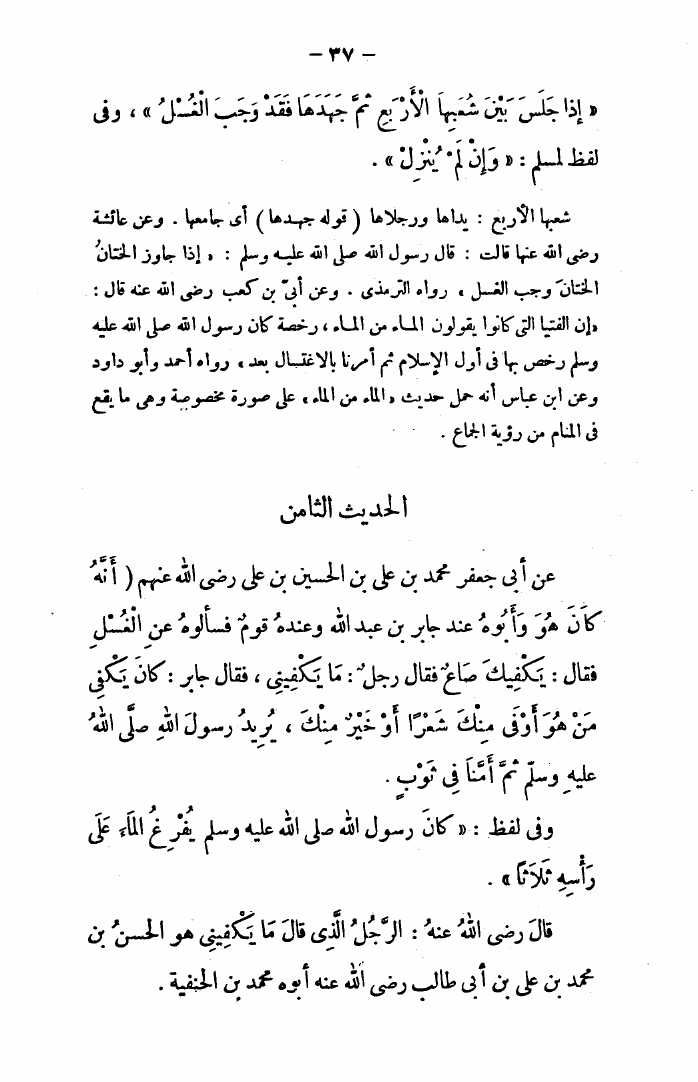 – ٣٧ –
« إذا جَلَسَ بَيْنَ شُعَبِهاَ الْأَرْبَعِ ثُمَّ جَهَدَهَا فَقَدْ وَجَبَ الْغُسْلُ » ، وفى
لفظ لمسلم : « وَإِنْ لَمْ يُنْزِلْ » .
شعبها الأربع : يداها ورجلاها ( قوله جهدها ) أى جامعها . وعن عائشة
رضى الله عنها قالت : قال رسول الله صلى الله عليه وسلم : « إذا جاوز الختانُ
الختانَ وجب الغسل » رواه الترمذى . وعن أبىّ بن كعب رضى الله عنه قال :
«إن الفتيا التى كانوا يقولون الماء من الماء ، رخصة كان رسول الله صلى الله عليه
وسلم رخص بها فى أول الإسلام ثم أمرنا بالاغتسال بعد » رواه أحمد وأبو داود
وعن ابن عباس أنه حمل حديث «الماء من الماء» على صورة مخصوصة وهى ما يقع
فى المنام من رؤية الجماع .
الحديث الثامن
عن أبى جعفر محمد بن على بن الحسين بن على رضى الله عنهم ( أَنَّهُ
كاَنَ هُوَ وَأَبُوهُ عند جابر بن عبد الله وعندهُ قومٌ فسألوهُ عنِ الْغُسْلِ
فقال : يَكْفِيكَ صَاعٌ فقال رجلٌ : مَا يَكْفِينِى ، فقال جابر : كانَ يَكْفِى
مَنْ هُوَ أَوْفَى مِنْكَ شَعْرًا أَوْ خَيْرٌ مِنْكَ ، يُرِيدُ رسولَ اللهِ صلَّى اللهُ
عليهِ وسلّم ثمَّ أَمَّنَا فِى ثَوْبٍ .
وفى لفظ : « كانَ رسول الله صلى الله عليه وسلم يُفْرِغُ المَاءَ عَلَى
رَأْسِهِ ثَلَاثًا » .
قالَ رضى اللهُ عنهُ : الرَّجُلُ الَّذِى قالَ مَا يَكْفِينِى هو الحسنُ بن
محمد بن على بن أبى طالب رضى الله عنه أبوه محمد بن الحنفية .